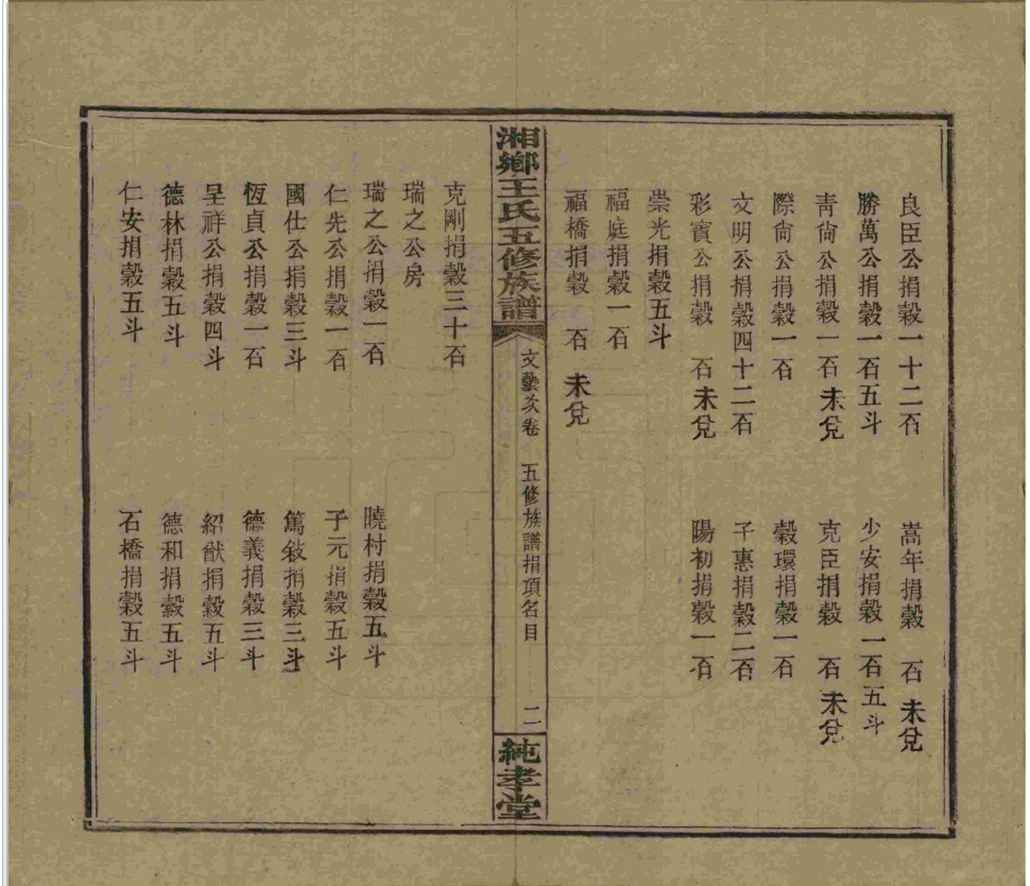 良臣公捐穀一十二石
嵩年捐穀　石未兌
勝萬公捐穀一石五斗
少安捐穀一石五斗
青尙公捐穀一石未兌
克臣捐穀　石未兌
際尙公捐穀一石
穀環捐穀一石
文明公捐穀四十二石
子惠捐穀二石
彩寶公捐穀　石未兌
陽初捐穀一石
崇光捐穀五斗
福庭捐穀一石
福橋捐穀　石未兌
湘鄉王氏五修族譜
文藝次卷
五修族譜捐項名目
二
純孝堂
克剛捐穀三十石
瑞之公房
瑞之公捐穀一石
曉村捐穀五斗
仁先公捐穀一石
子元捐穀五斗
國仕公捐穀三斗
篤敍捐穀三斗
恆貞公捐穀一石
德義捐穀三斗
呈祥公捐穀四斗
紹猷捐穀五斗
德林捐穀五斗
德和捐穀五斗
仁安捐穀五斗
石橋捐穀五斗